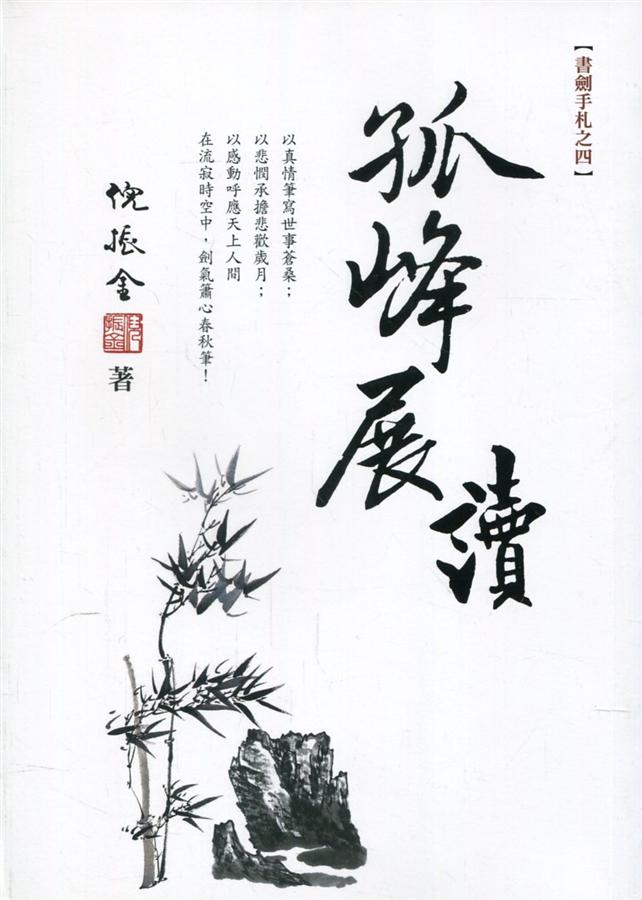 【書劍手札之四】
孤峰展讀
以真情筆寫世事蒼桑；
以悲憫承擔悲歡歲月；
以感動呼應天上人間
在流寂時空中，劍氣簫心春秋筆！
倪振金
倪振金
著